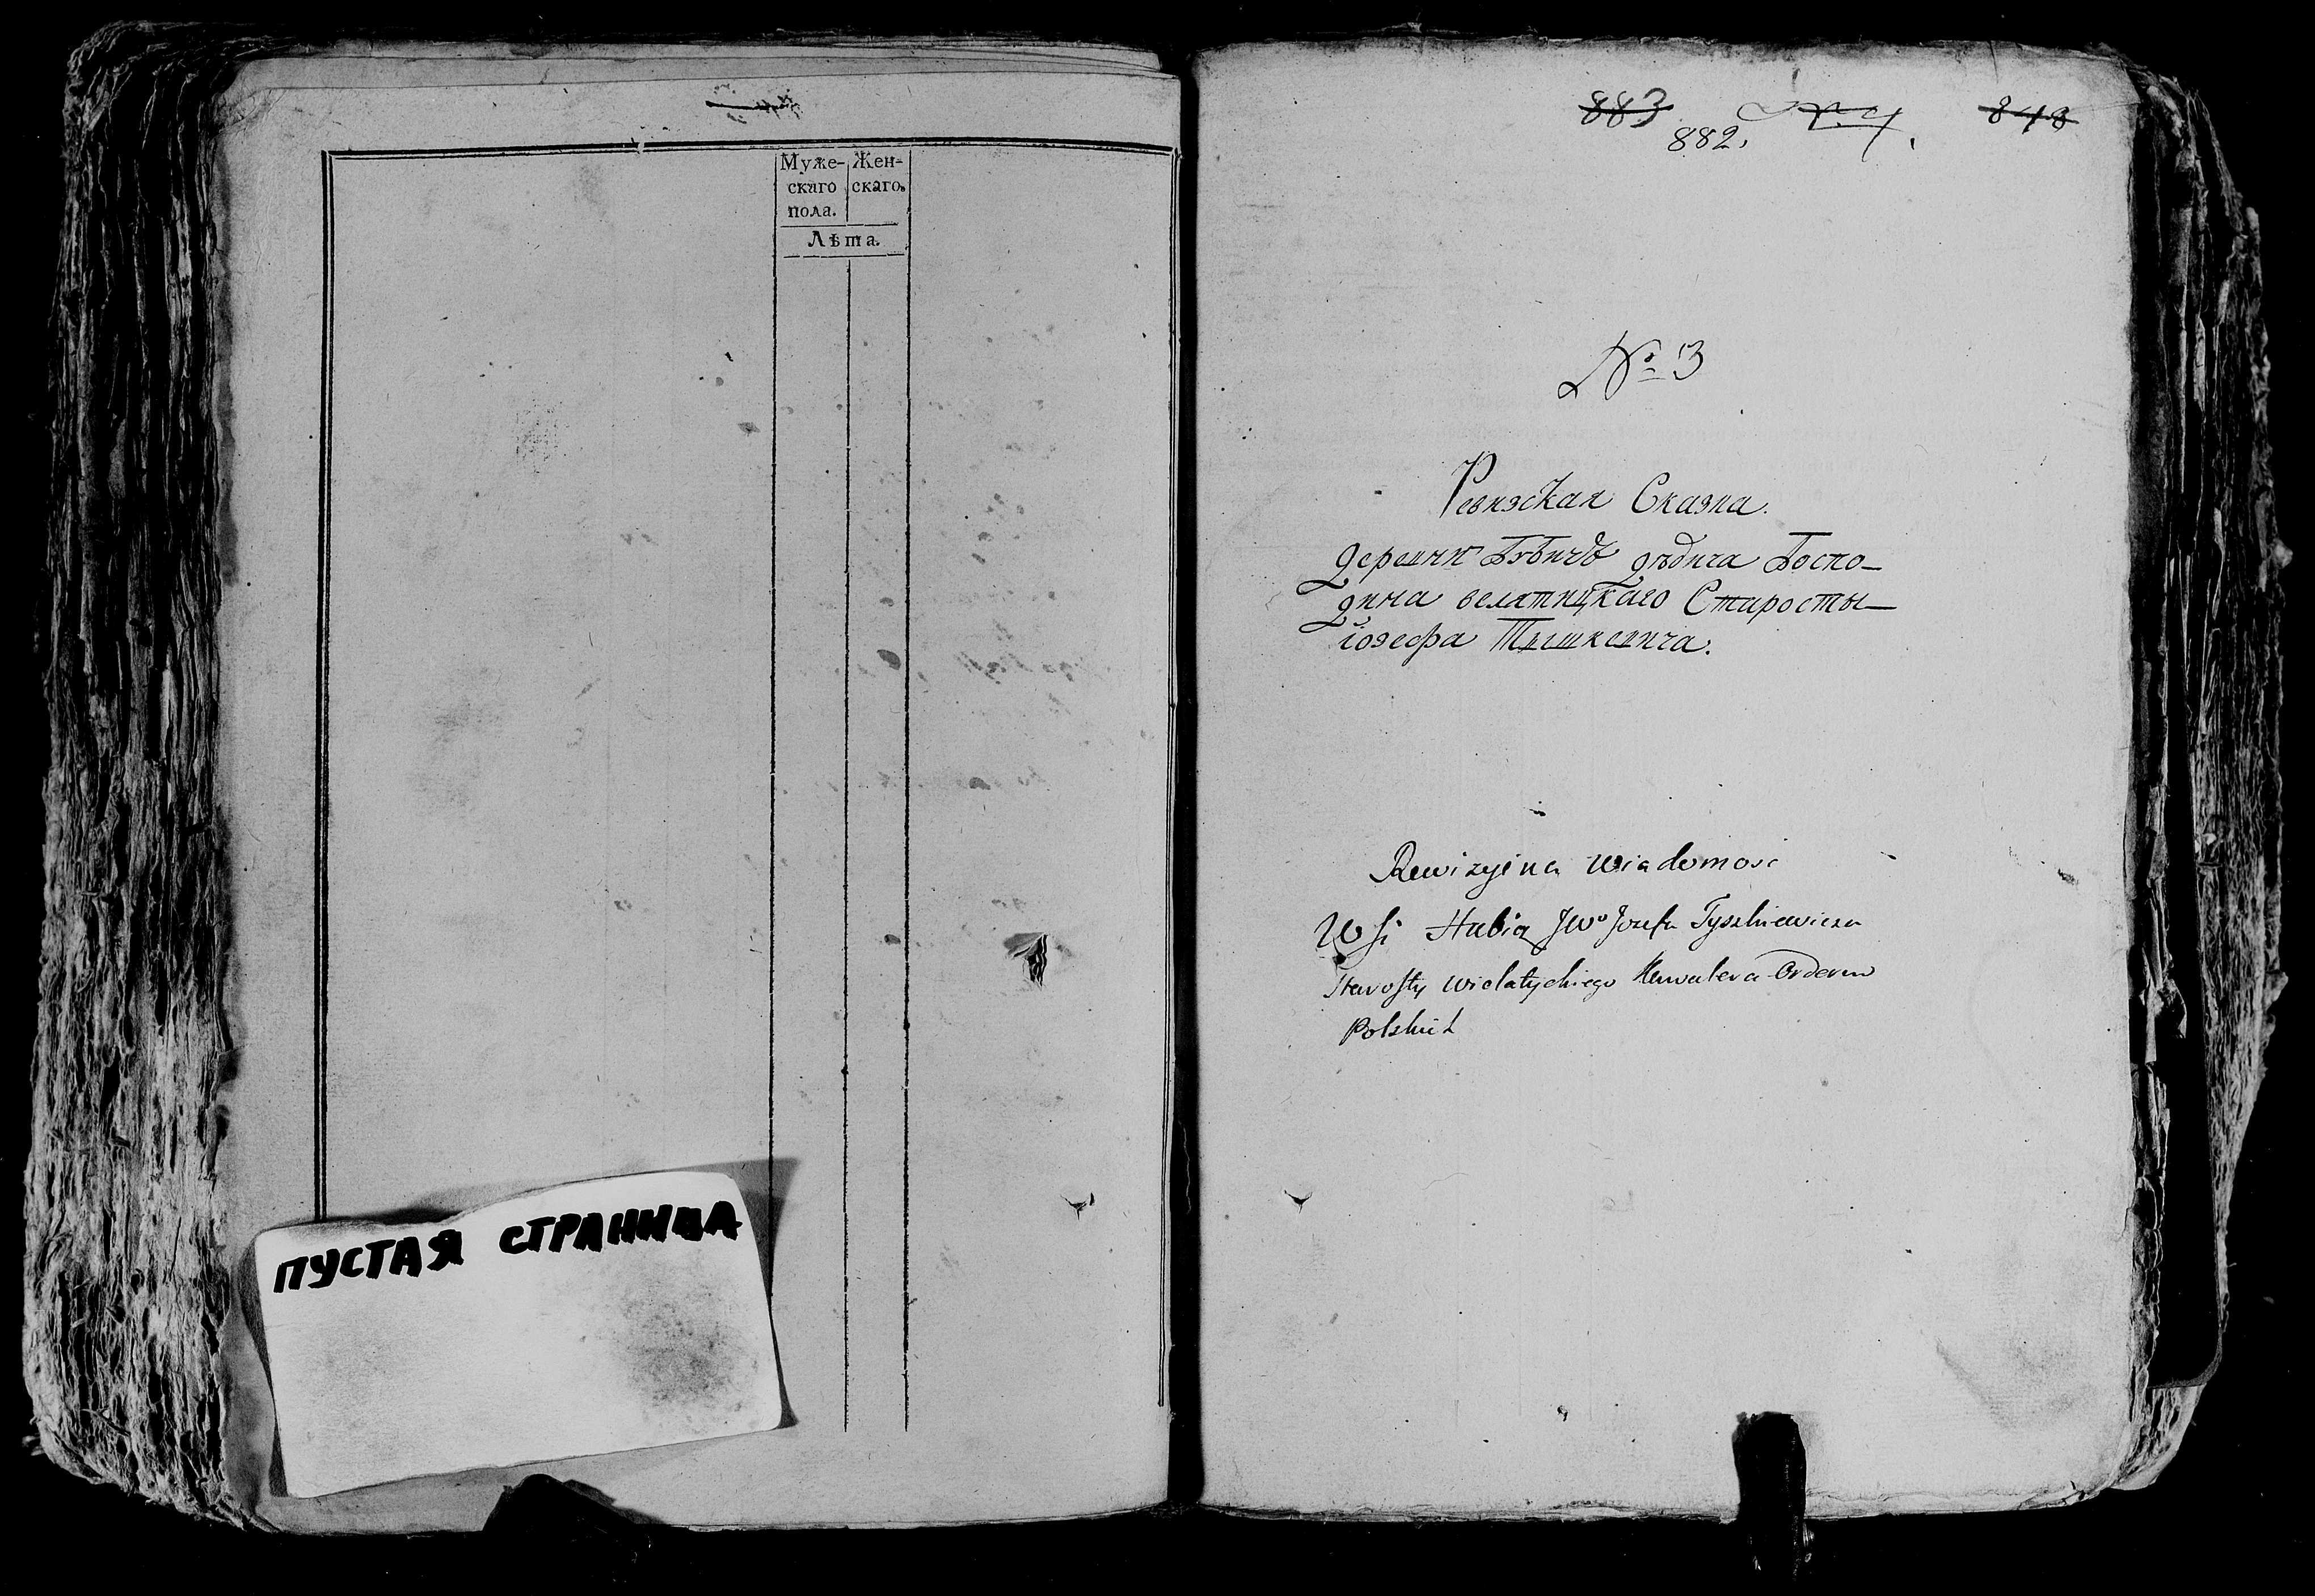 Муже- Жен-
скаго скаго.
пола.
Лѣта.
ПУСТАЯ СТРАНИЦА
883 843
882.
№ 3
Ревизская Сказка.
деревни дѣдича Госпо-
дина велятицкаго Старосты
іозефа Тышкевича.
Rewizyina Wiadomosc
Wsi JWo Jozefa Tyszkiewicza
Starosty Wielatyckiego Kawalera Orderow
Polskich